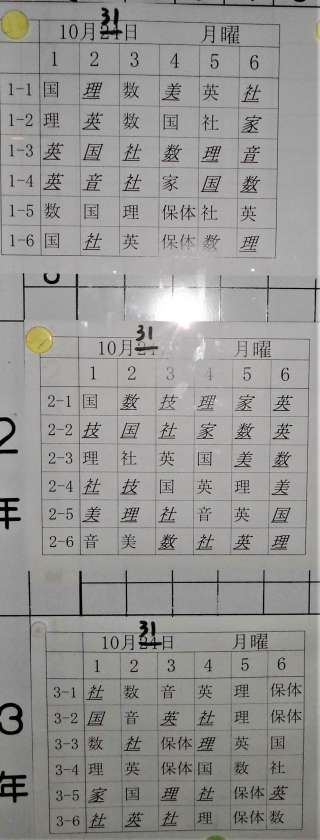 31
10月24日 月曜
1 2 3 4 5 6
1-1 国 理 数 美 英 社
1-2 理 英 数 国 社 家
1-3 英 国 社 数 理 音
1-4 英 音 社 家 国 数
1-5 数 国 理 保体 社 英
1-6 国 社 英 保体 数 理
31
10月24 月曜
1 2 3 4 5 6
2-1 国 数 技 理 家 英
2-2 技 国 社 家 数 英
2-3 理 社 英 国 美 数
2-4 社 技 国 英 理 美
2-5 美 理 社 音 英 国
2-6 音 美 数 社 英 理
2年
31
10月24日 月曜
1 2 3 4 5 6
3-1 社 数 音 英 理 保体
3-2 国 音 英 社 理 保体
3-3 数 社 保体 理 英 国
3-4 理 英 保体 国 数 社
3-5 家 国 理 社 保体 英
3-6 社 英 社 理 保体 数
3年